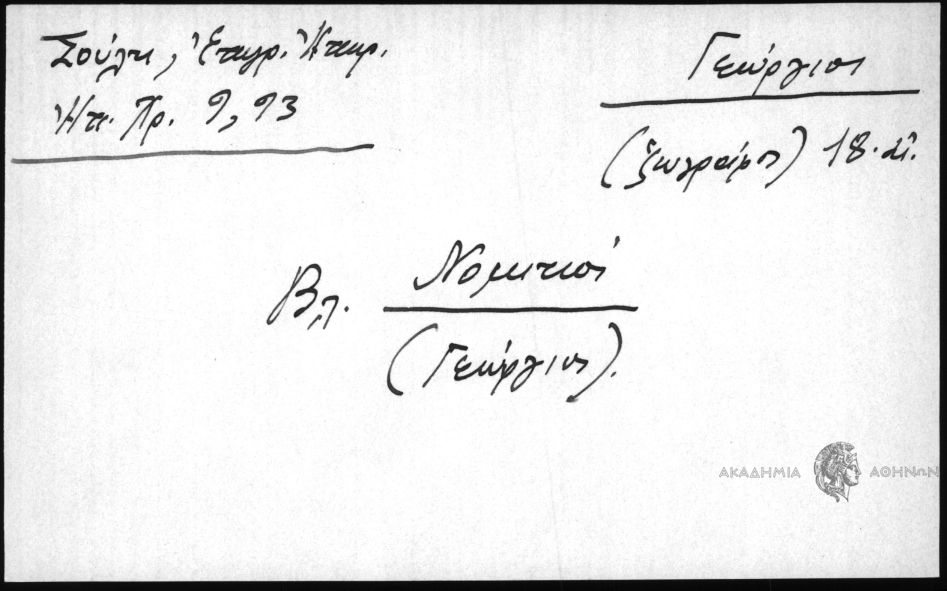 Σούλη, Ἐπιγρ. Ἠπειρ.
Ἠπ. Χρ. 9, 93
Γεώργιος
(ζωγράφος) 18. αἰ.
Βλ.
(Γεώργιος).
ΑΚΑΔΗΜΙΑ ΑΘΗΝΩΝ